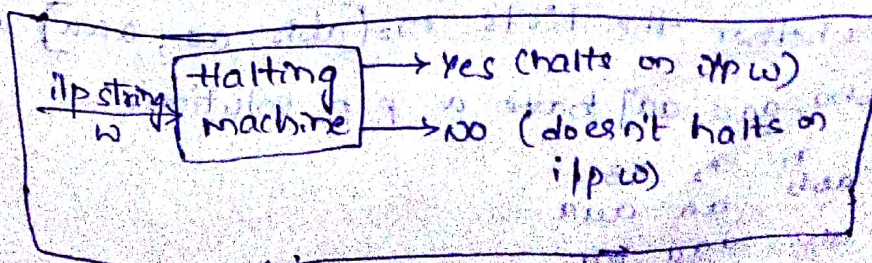 i/p string
w
Halting
machine
→ Yes (halts on i/p w)
→ No (doesn't halts on
i/p w)